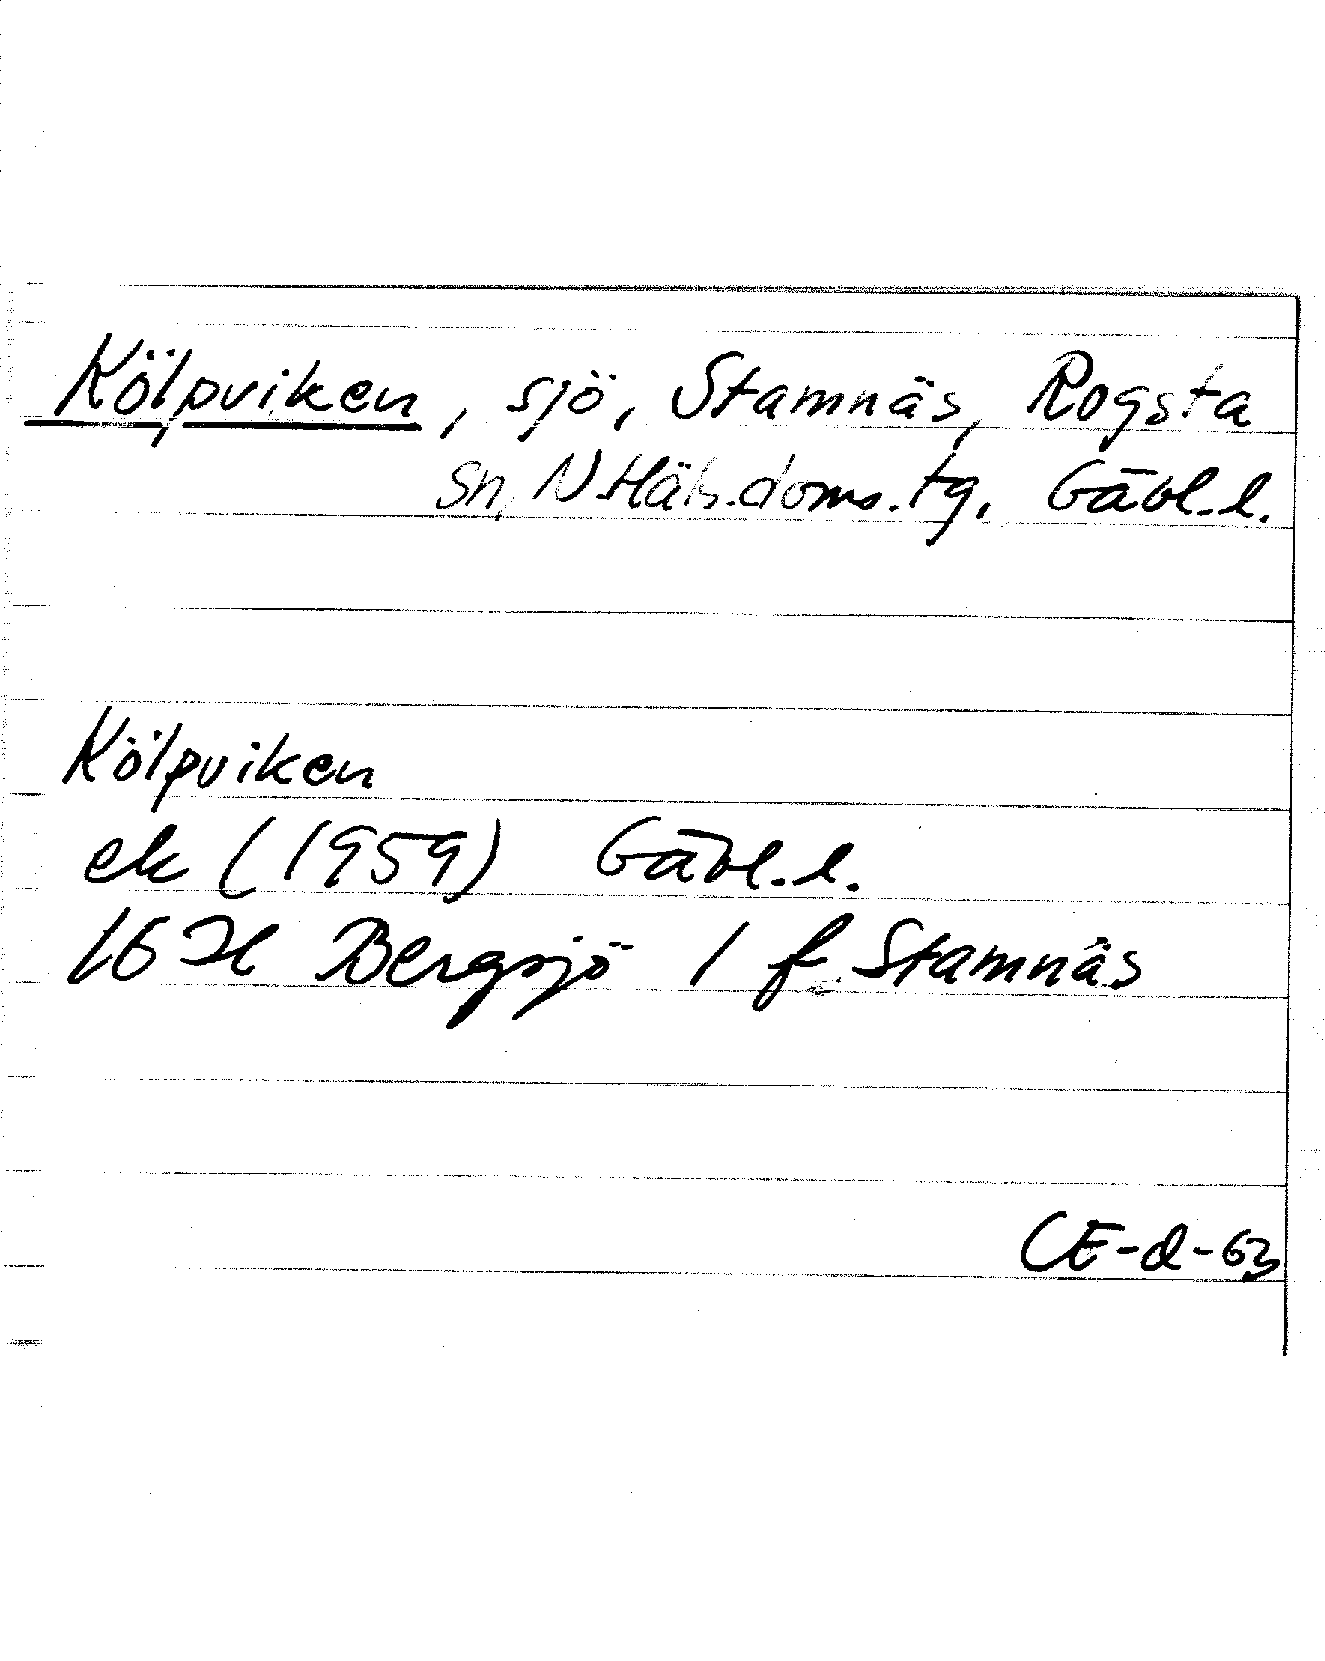 Kölpviken, sjö, Stamnäs, Rogsta
sn, N Häls. doms. tg, Gävl. l.
Kölpviken
ek (1959) Gävl. l.
16H Bergsjö 1 f Stamnäs
CE-d-63